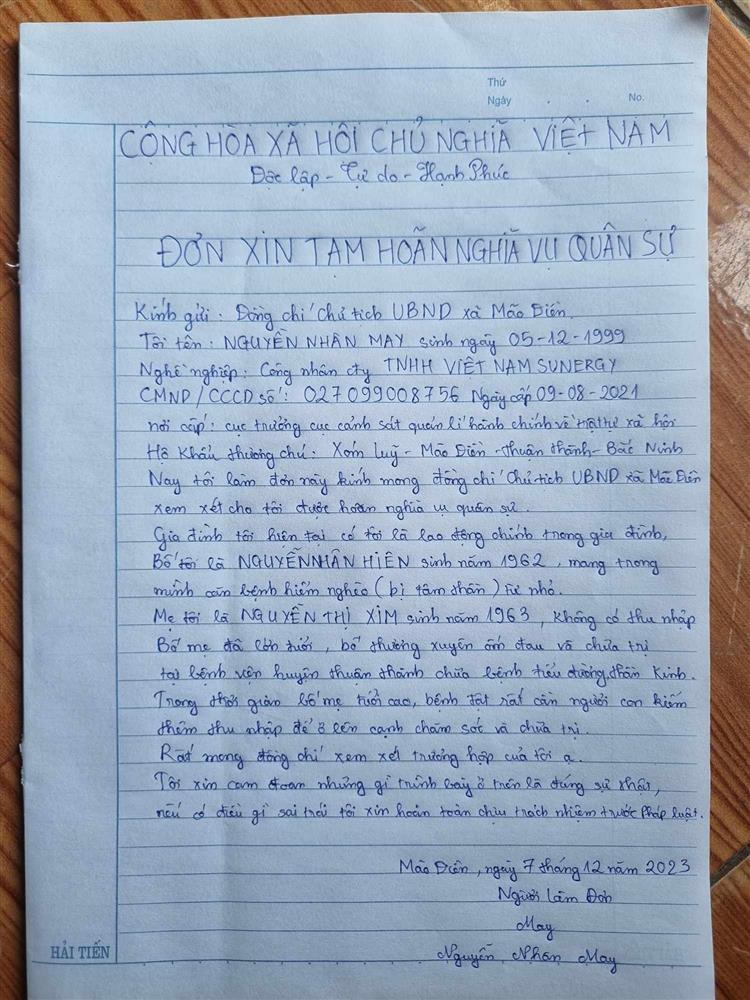 Thứ
Ngày . . No.
CỘNG HÒA XÃ HỘI CHỦ NGHĨA VIỆT NAM
Độc lập - Tự do - Hạnh Phúc
ĐƠN XIN TẠM HOÃN NGHĨA VỤ QUÂN SỰ
Kính gửi : Đồng chí Chủ tịch UBND xã Mão Điền.
Tôi tên : NGUYỄN NHÂN MAY sinh ngày 05-12-1999
Nghề nghiệp : Công nhân cty TNHH VIỆT NAM SUNERGY
CMND/CCCD số : 027099008756 Ngày cấp 09-08-2021
nơi cấp : cục trưởng cục cảnh sát quản lí hành chính về trật tự xã hội
Hộ Khẩu thường chú : Xóm Luỹ - Mão Điền - Thuận Thành - Bắc Ninh
Nay tôi làm đơn này kính mong đồng chí Chủ tịch UBND xã Mão Điền
xem xét cho tôi được hoãn nghĩa vụ quân sự.
Gia đình tôi hiện tại có tôi là lao động chính trong gia đình,
Bố tôi là NGUYỄN NHÂN HIÊN sinh năm 1962, mang trong
mình căn bệnh hiểm nghèo (bị tâm thần) từ nhỏ.
Mẹ tôi là NGUYỄN THỊ XIM sinh năm 1963, không có thu nhập
Bố mẹ đã lớn tuổi, bố thường xuyên ốm đau và chữa trị
tại bệnh viện huyện thuận thành chữa bệnh tiểu đường, thần kinh.
Trong thời gian bố mẹ tuổi cao, bệnh tật rất cần người con kiếm
thêm thu nhập để ở bên cạnh chăm sóc và chữa trị.
Rất mong đồng chí xem xét trường hợp của tôi ạ.
Tôi xin cam đoan những gì trình bày ở trên là đúng sự thật,
nếu có điều gì sai trái tôi xin hoàn toàn chịu trách nhiệm trước pháp luật.
Mão Điền, ngày 7 tháng 12 năm 2023
Người làm Đơn
May
Nguyễn Nhân May
HẢI TIẾN